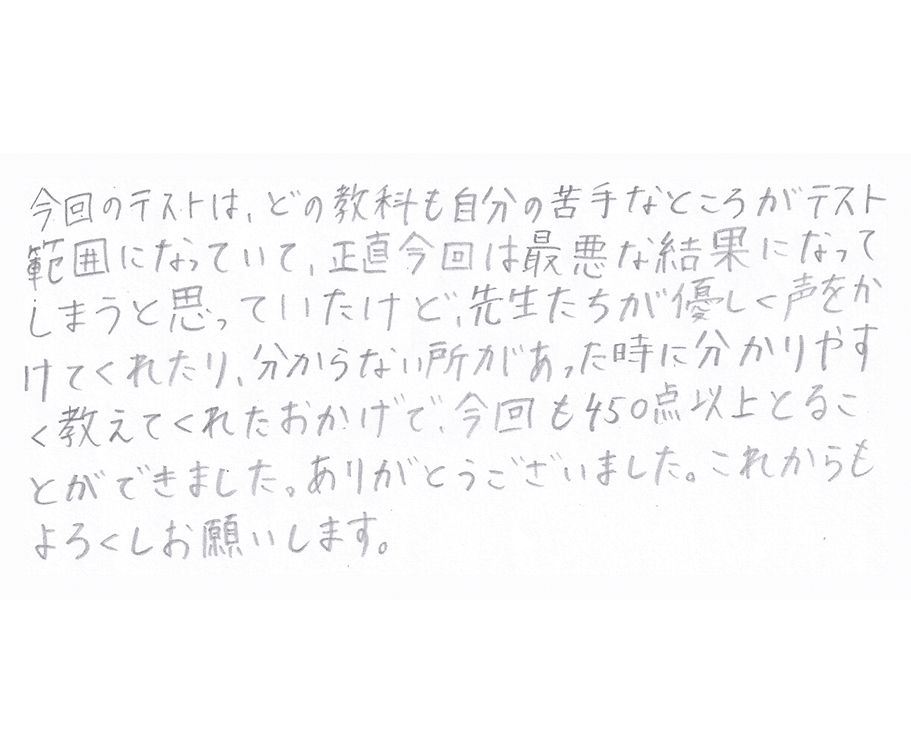 今回のテストは、どの教科も自分の苦手なところがテスト
範囲になっていて、正直今回は最悪な結果になって
しまうと思っていたけど、先生たちが優しく声をか
けてくれたり、分からない所があった時に分かりやす
く教えてくれたおかげで、今回も450点以上とるこ
とができました。ありがとうございました。これからも
よろくしお願いします。